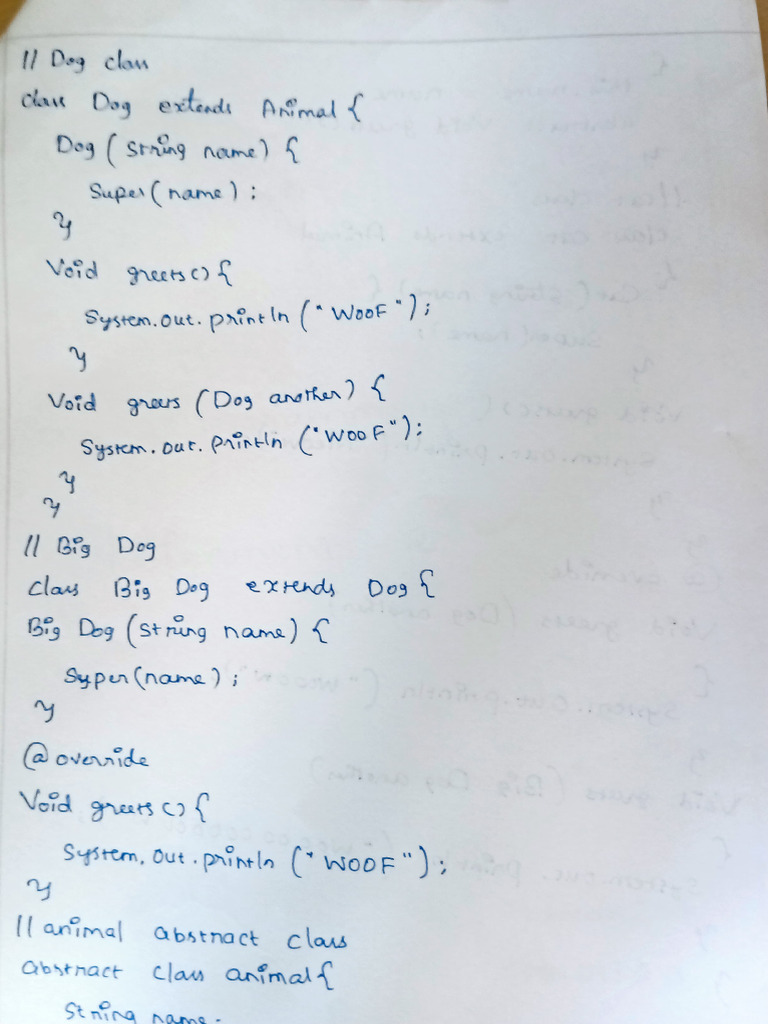 // Dog class
class Dog extends Animal {
Dog ( String name) {
Super ( name ) ;
}
Void greets () {
System.out.println ("WOOF");
}
Void greets (Dog another) {
System.out.println ("WOOF");
}
}
// Big Dog
Class Big Dog extends Dog {
Big Dog (String name) {
Super (name) ;
}
@override
Void greets () {
System.out.println ("WOOF");
}
// animal abstract class
abstract class animal {
String name